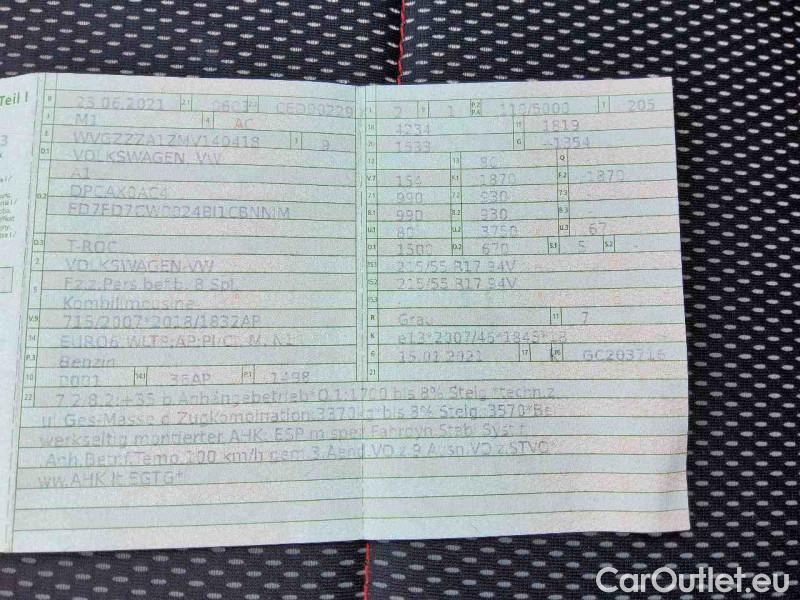 Teil I
B 23.06.2021 2.1 0603 2.2 CED00229
J M1 4 AC
E WVGZZZA1ZMV140418 3 9
D.1 VOLKSWAGEN, VW
A1
D.2 DPCAX0AC4
FD7FD7CW0024BI1CBNNIM
D.3 T-ROC
2 VOLKSWAGEN-VW
5 Fz.z.Pers.bef.b. 8 Spl.
Kombilimousine
V.9 715/2007*2018/1832AP
14 EURO6
P.3 Benzin
10 0001 14.1 36AP P.1 1498
L 2 9 1 P.2 P.4 110/5000 T 205
18 4234 19 1819
20 1533 G 1354
12 13 80 Q -
V.7 154 F.1 1870 F.2 1870
7.1 990 7.2 930
8.1 990 8.2 930
U.1 80 U.2 3750 U.3 67
O.1 1500 O.2 670 S.1 5 S.2 -
15.1 215/55 R17 94V
15.2 215/55 R17 94V
15.3 -
R Grau 11 7
K e13*2007/46*1845*
6 15.01.2021 17 K 16 GC203716
22 7.2/8.2:+35 b.Anhängebetrieb*O.1:1700 bis 8% Steig.*techn.z
ul.Ges-Masse d.Zugkombination:3370kg*bis 8% Steig.:3570*Bei
werkseitig montierter AHK: ESP m.spez.Fahrdyn.Stab.Syst.f.
Anh.Betr.f.Temp.100 km/h gem.3.Aend.VO z.9.Ausn.VO z.STVO*
ww.AHK lt.EGTG*
CarOutlet.eu